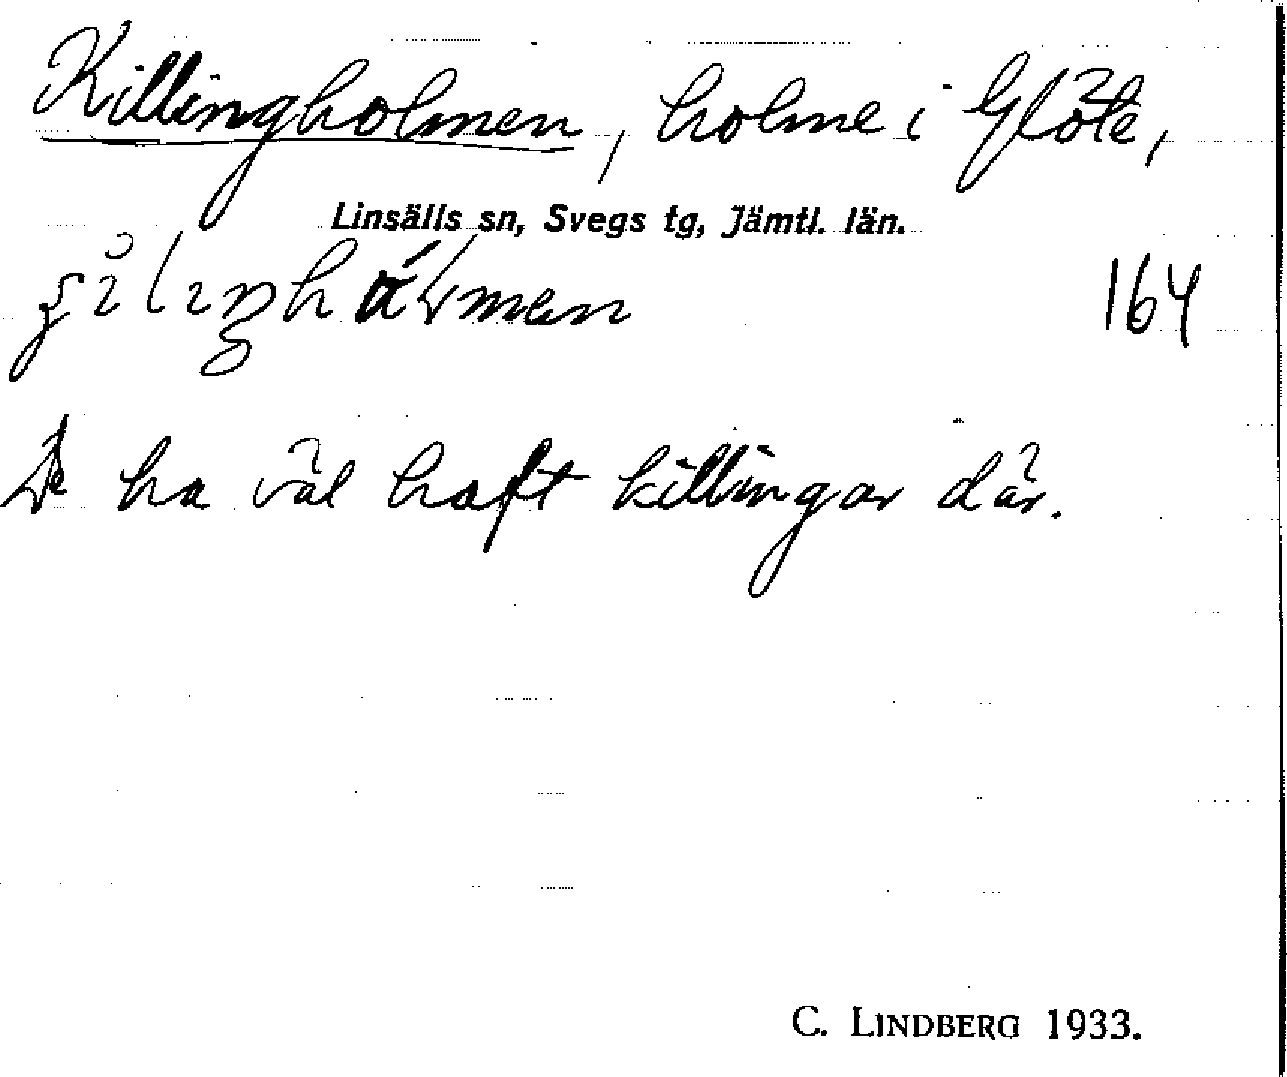 Killingholmen, holme i Glöte,
Linsälls sn, Svegs tg, Jämtl. län.
164
De ha väl haft killingar där.
C. LINDBERG 1933.